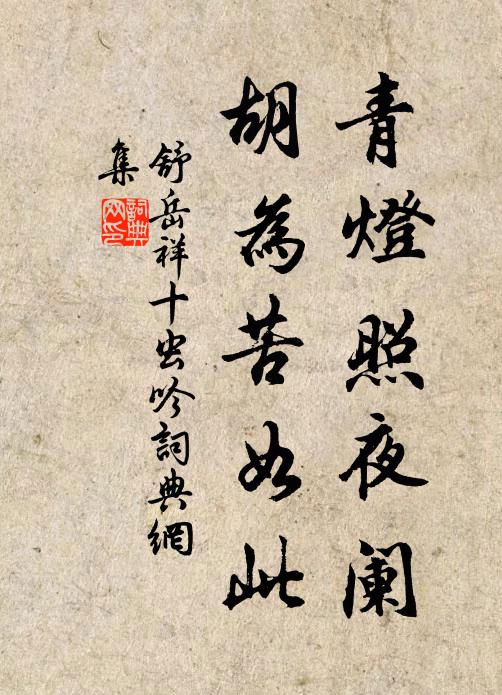 青燈照夜阑
胡為苦如此
舒岳祥十虫吟詞典網
集
詞典网印